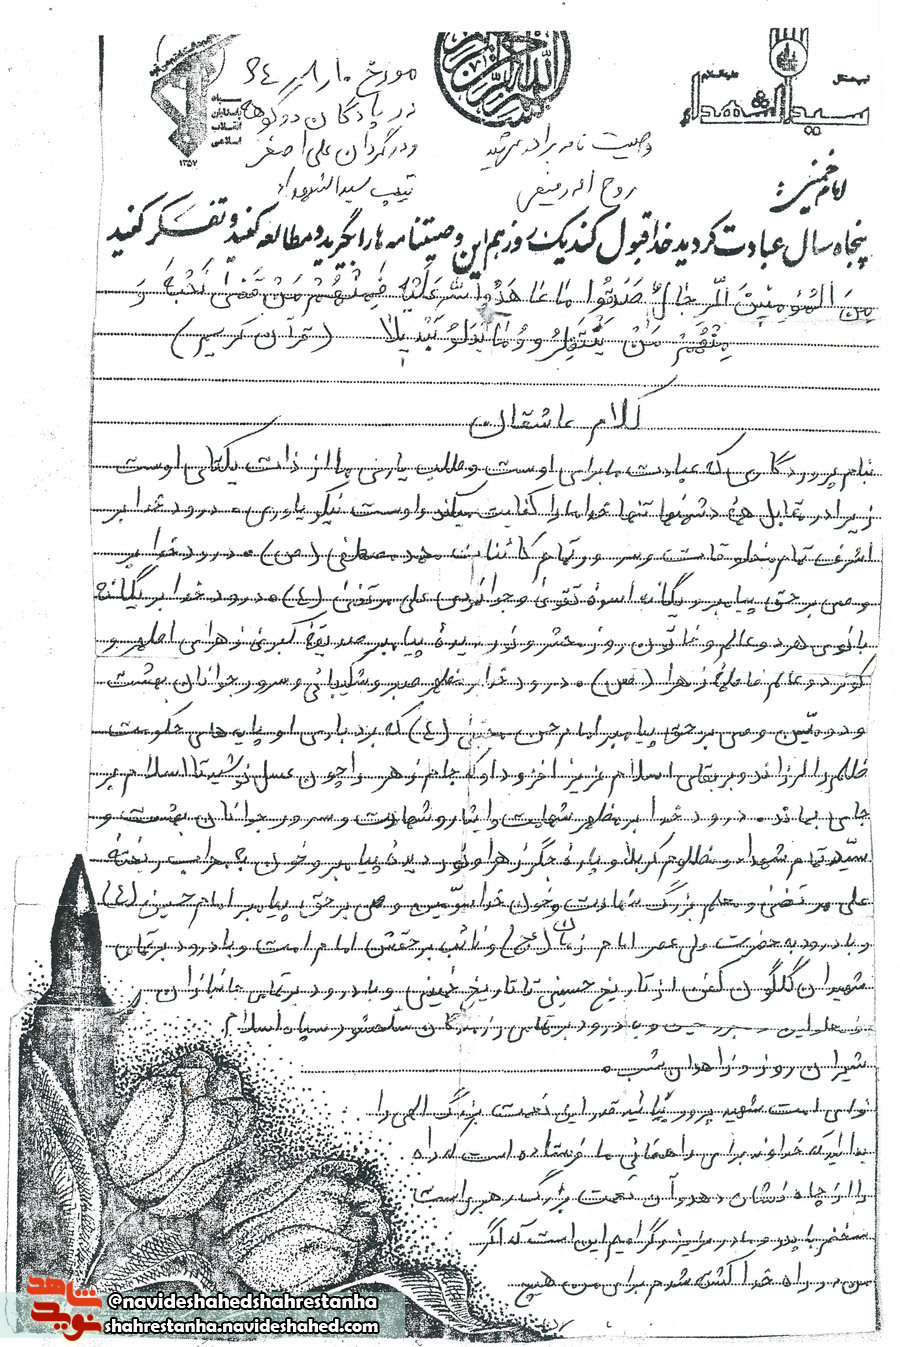 تیپ مستقل
سیدالشهداء
علیه‌السلام
سپاه
پاسداران
انقلاب
اسلامی
۱۳۵۷
مورخ ۶۴/۸/۱۰
در پادگان دوکوهه
و در گردان علی اصغر
تیپ سیدالشهداء
وصیت نامه برادر شهید
روح اله
امام خمینی:
پنجاه سال عبادت کردید خدا قبول کند یک روز هم این وصیتنامه ها را بگیرید و مطالعه کنید و تفکر کنید
مِنَ المُؤمِنینَ الّرِجالٌ صَدَقُوا مٰا عٰاهَدُوا اللهَ عَلَیْهِ فَمِنْهُمْ مَنْ قَضیٰ نَحْبَهُ وَ
مِنْهُمْ مَنْ یَنْتَظِرُ وَ مٰا بَدَّلوُ تَبْدیلاً (قرآن کریم)
کلام عاشقان
بنام پروردگاری که عبادت ما برای اوست و طلب یاری ما از ذات یکتای اوست
زیرا در مقابل همه دشمنها تنها خدا ما را کفایت میکند و اوست نیکو یاوری . درود خدا بر
اشرف تمام مخلوقات و سرور تمام کائنات محمد مصطفی (ص) . درود خدا بر
وصی بر حق پیامبر و یگانه اسوه تقوی و جوانمردی علی مرتضی (ع) . درود خدا بر یگانه
بانوی هر دو عالم و خاتون روز محشر و نور دیده پیامبر صدیقه کبری زهرای اطهر و
کوثر دو عالم فاطمه زهرا (ص) . درود خدا بر مظهر صبر و شکیبائی و سرور جوانان بهشت
و دومین وصی بر حق پیامبر امام حسن مجتبی (ع) که بردباری او پایه های حکومت
ظلم را لرزاند و بر بقای اسلام عزیز افزود او که جام زهر را چون عسل نوشید تا اسلام بر
جای بماند . درود خدا بر مظهر شهامت و ایثار و شهادت و سرور جوانان بهشت و
سید تمام شهداء و مظلوم کربلا و پاره جگر زهرا و نور دیده پیامبر و خون به محراب ریخته
علی مرتضی و معلم بزرگ شهادت و خون خدا سومین وصی بر حق پیامبر امام حسین (ع)
و با درود به حضرت ولی عصر امام زمان (عج) و نائب بر حقش امام امت و با درود بر تمامی
شهیدان گلگون کفن از تاریخ حسینی تا تاریخ خمینی و با درود بر تمامی جانبازان
و معلولین و با درود بر تمامی رزمندگان سلحشور سپاه اسلام
شیران روز و زاهدان شب .
توای امت شهید پرور بیائید قدر این نعمت بزرگ الهی را
بدانید که خداوند برای راهنمائی ما فرستاده است که راه
را از چاه نشان دهد و آن نعمت بزرگ رهبری است
سخنم با پدر و مادر عزیز و گرامیم این است که اگر
من در راه خدا کشته شدم برای من هیچ
شاهد
نوید
@navideshahedshahrestanha
shahrestanha.navideshahed.com